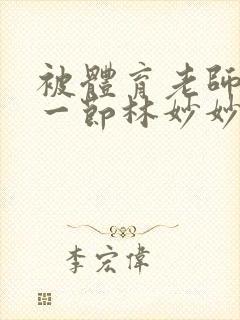 被體育老師
一節林妙妙
李宏偉